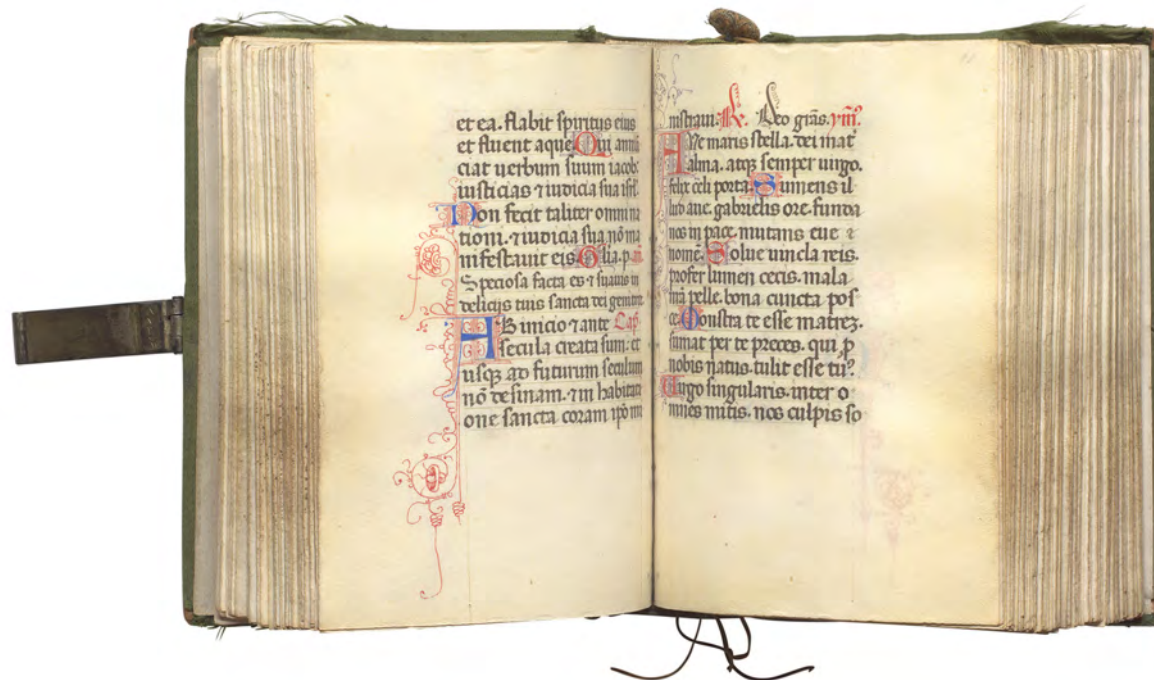 et ea. flabit spiritus eius
et fluent aque. Qui annũ
ciat uerbum suum iacob.
iusticias ⁊ iudicia sua isrl̃.
Non fecit taliter omni na
tioni. ⁊ iudicia sua nõ ma
nifestauit eis. Glia. p. an̄.
Speciosa facta es ⁊ suauis in
delicijs tuis sancta dei genitrix
AB inicio ⁊ ante Cap̃
secula creata sum. et
usqꝫ ad futurum seculum
nõ desinam. ⁊ in habitati
one sancta coram ip̃o mi
nistraui. R. Deo gr̃as. ym̃.
AVe maris stella. dei mat̃
alma. atqꝫ semper uirgo.
felix celi porta. Sumens il
lud aue. gabrielis ore. funda
nos in pace. mutans eue
nomẽ. Solue uincla reis.
profer lumen cecis. mala
nr̃a pelle. bona cuncta pos
ce. Monstra te esse matreꝫ.
sumat per te preces. qui ꝓ
nobis natus. tulit esse tuꝰ.
Uirgo singularis. inter o
mnes mitis. nos culpis so